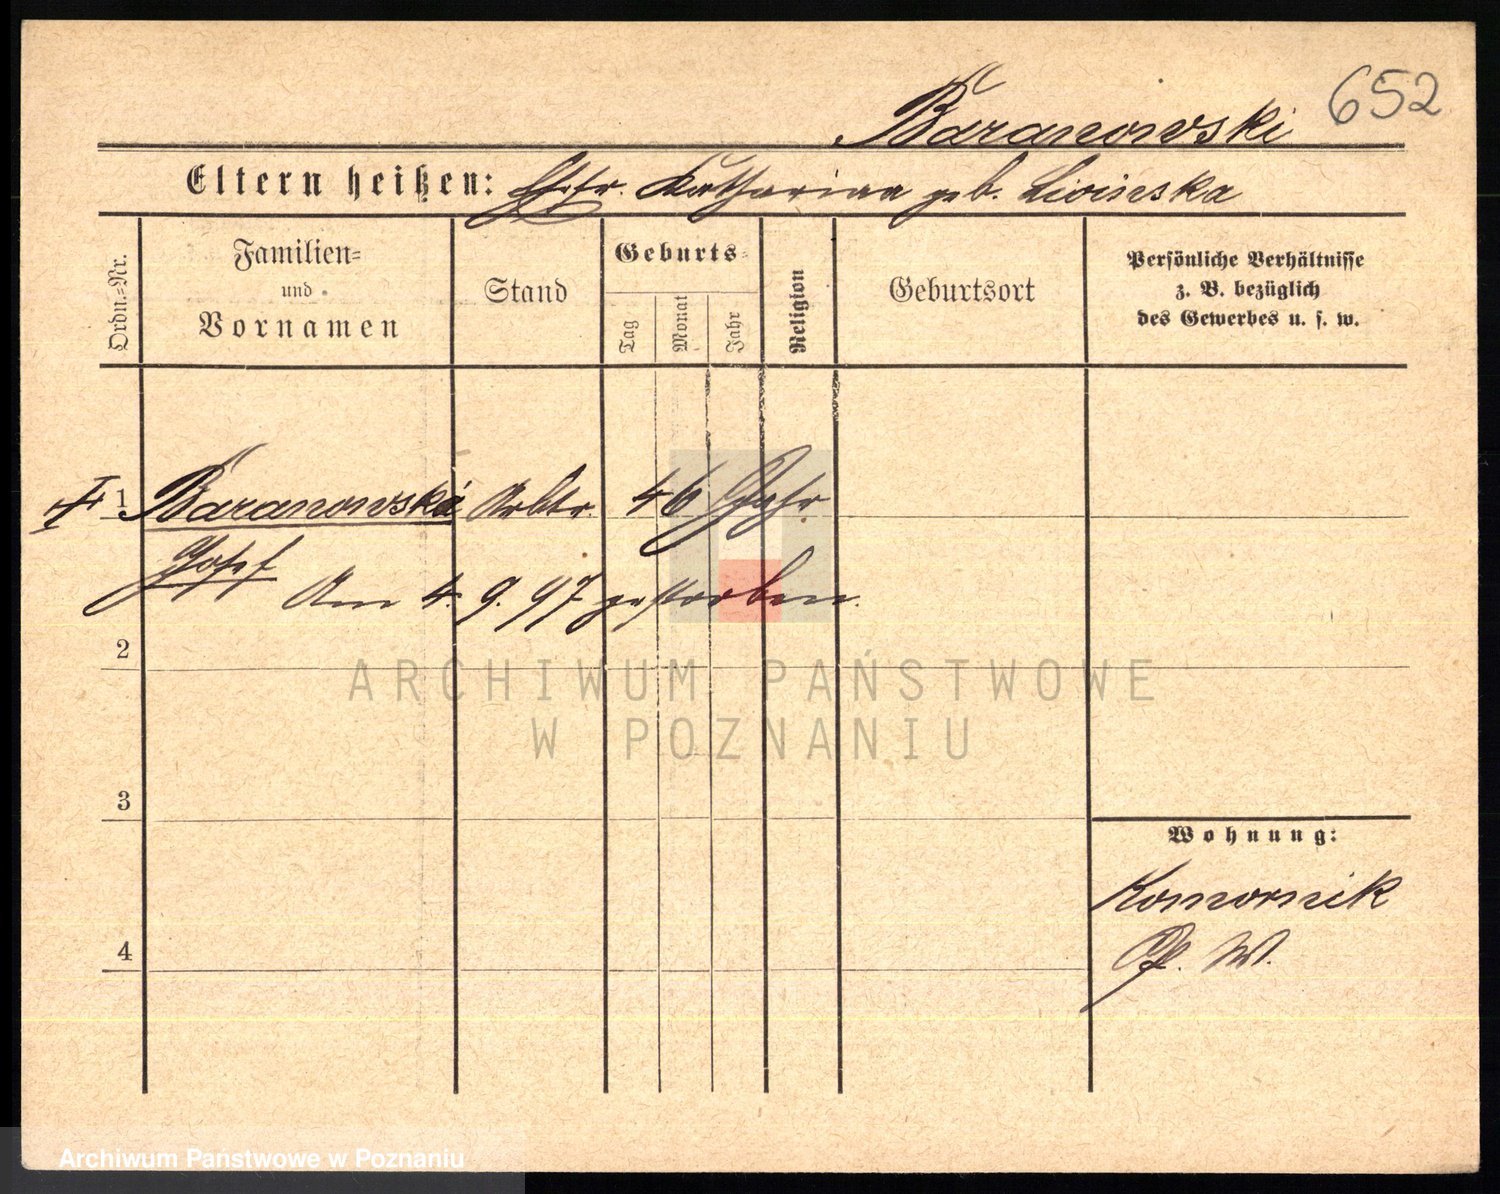 652
Baranowski
Eltern heißen: Ehefr. Katharina geb. Livinska
Ordn.-Nr.
Familien-
und
Vornamen
Stand
Geburts-
Tag
Monat
Jahr
Religion
Geburtsort
Persönliche Verhältnisse
z. B. bezüglich
des Gewerbes u. s. w.
1 Baranowski Arbtr. 46 Jahr
Josef
Am 4. 9. 97 gestorben.
2
ARCHIWUM PAŃSTWOWE
W POZNANIU
3
Wohnung:
Komornik
4
W.
Archiwum Państwowe w Poznaniu